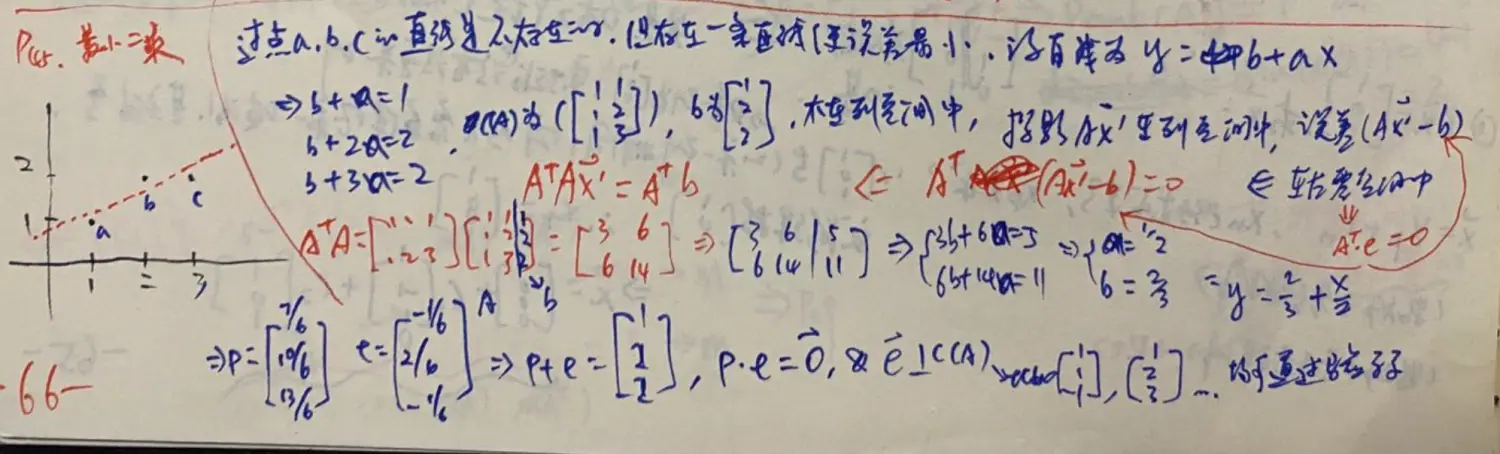 P45. 最小二乘
过点a.b.c的直线是不存在的.但存在一条直线使误差最小.设直线为 y=b+ax
⇒ b+a=1
b+2a=2
b+3a=2
, C(A)为([1 1; 1 2; 1 3]), b为[1 2 2], 不在列空间中, 投影Ax⃗'在列空间中, 误差(Ax⃗'-b)
AᵀAx⃗'=Aᵀb ⇐ Aᵀ(Ax⃗'-b)=0 ⇐ 在左零空间中
⇓
Aᵀ·e=0
AᵀA=[1 1 1; 1 2 3][1 1 | 1; 1 2 | 2; 1 3 | 2]=[3 6; 6 14] ⇒ [3 6 | 5; 6 14 | 11] ⇒ {3b+6a=5 6b+14a=11 ⇒ {a=1/2 b=2/3 = y=2/3+x/2
A b
⇒P=[7/6 10/6 13/6] e=[-1/6 2/6 -1/6] ⇒ p+e=[1 2 2], p·e=0⃗, & e⃗⊥C(A) [1 1 1], [1 2 3] ... 均可通过
2
1
a
b
c
1
2
3
-66-